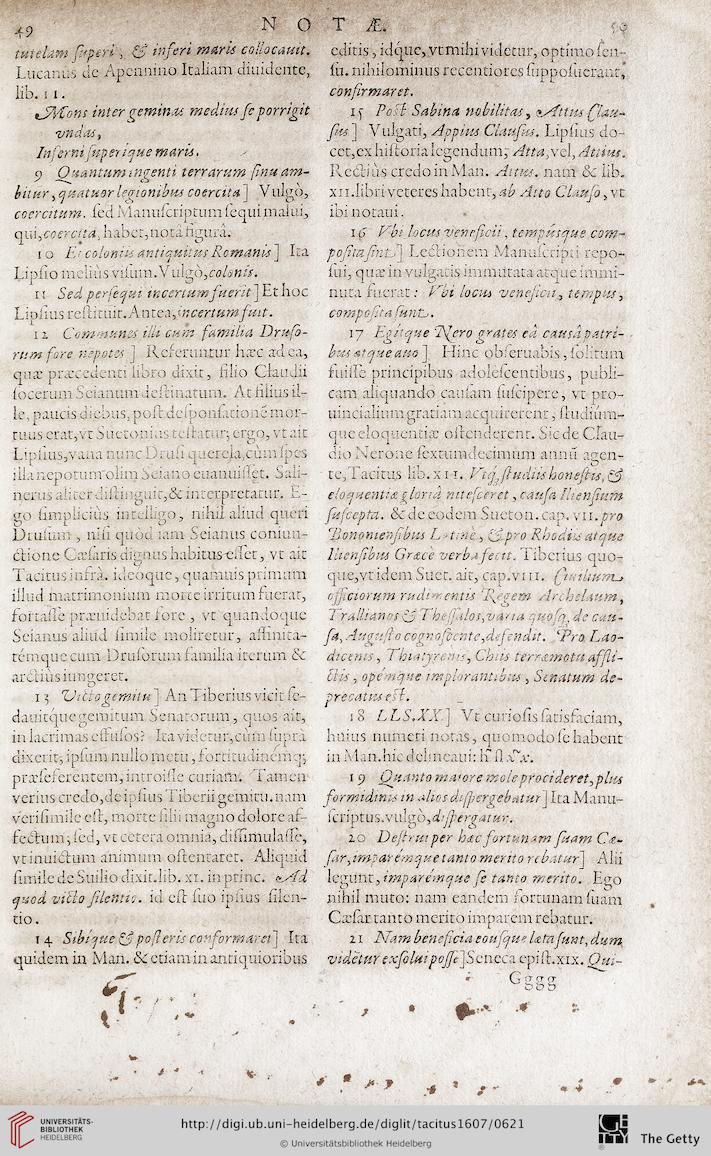 49 NOTÆ. 50
tutelam superi, & inferi maris collocauit.
Lucanus de Apennino Italiam diuidente,
lib. II.
Mons inter geminas medius se porrigit
vndas,
Inferni superique maris.
9 Quantum ingenti terrarum sinu am-
bitur, quatuor legionibus coercita] Vulgò,
coercitum. sed Manuscriptum sequi malui,
qui, coercita, habet, nota figurâ.
10 Et coloniis antiquitus Romanis] Ita
Lipsio meliùs visum. Vulgò, colonis.
11 Sed persequi incertum fuerit] Et hoc
Lipsius restituit. Antea, incertum fuit.
12 Communes illi cum familia Druso-
rum fore nepotes] Referuntur hæc ad ea,
quæ præcedenti libro dixit, filio Claudii
socerum Seianum destinatum. At filius il-
le, paucis diebus, post desponsationē mor-
tuus erat, vt Suetonius testatur; ergo, vt ait
Lipsius, vana nunc Drusi querela, cùm spes
illa nepotum olim Seiano euanuisset. Sali-
nerus aliter distinguit, & interpretatur. E-
go simpliciùs intelligo, nihil aliud queri
Drusum, nisi quòd iam Seianus coniun-
ctione Cæsaris dignus habitus esset, vt ait
Tacitus infrà. ideoque, quamuis primum
illud matrimonium morte irritum fuerat,
fortasse præuidebat fore, vt quandoque
Seianus aliud simile moliretur, affinita-
témque cum Drusorum familia iterum &
arctiùs iungeret.
13 Victo gemitu] An Tiberius vicit se-
dauitque gemitum Senatorum, quos ait,
in lacrimas effusos? Ita videtur, cùm suprà
dixerit, ipsum nullo metu, fortitudinémq;
præseferentem, introisse curiam. Tamen
verius credo, de ipsius Tiberii gemitu. nam
verisimile est, morte filii magno dolore af-
fectum; sed, vt cetera omnia, dissimulasse,
vt inuictum animum ostentaret. Aliquid
simile de Suilio dixit. lib. XI. in princ. Ad
quod victo silentio. id est suo ipsius silen-
tio.
14 Sibíque & posteris conformaret] Ita
quidem in Man. & etiam in antiquioribus
editis, idque, vt mihi videtur, optimo sen-
su. nihilominus recentiores supposuerant,
confirmaret.
15 Post Sabina nobilitas, Attus Clau-
sus] Vulgati, Appius Clausus. Lipsius do-
cet, ex historia legendum, Atta, vel, Attius.
Rectiùs credo in Man. Attus. nam & lib.
XII. libri veteres habent, ab Atto Clauso, vt
ibi notaui.
16 Vbi locus veneficii, tempúsque com-
posita sint] Lectionem Manuscripti repo-
sui, quæ in vulgatis immutata atque immi-
nuta fuerat: Vbi locus veneficii, tempus,
composita sunt.
17 Egitque Nero grates eâ causâ patri-
bus atque auo] Hinc obseruabis, solitum
fuisse principibus adolescentibus, publi-
cam aliquando causam suscipere, vt pro-
uincialium gratiam acquirerent, studiúm-
que eloquentiæ ostenderent. Sic de Clau-
dio Nerone sextumdecimum annū agen-
te, Tacitus lib. XII. Vtq; studiis honestis, &
eloquentiæ gloriâ nitesceret, causa Iliensium
suscepta. & de eodem Sueton. cap. VII. pro
Bononiensibus Latinè, & pro Rhodiis atque
Iliensibus Græce verba fecit. Tiberius quo-
que, vt idem Suet. ait, cap. VIII. Ciuilium
officiorum rudimentis Regem Archelaum,
Trallianos & Thessalos, varia quosq; de cau-
sa, Augusto cognoscente, defendit. Pro Lao-
dicenis, Thiatyrenis, Chiis terræmotu affli-
ctis, opémque implorantibus, Senatum de-
precatus est.
18 LLS.XX.] Vt curiosis satisfaciam,
huius numeri notas, quomodo se habent
in Man. hic delineaui:
19 Quanto maiore mole procideret, plus
formidinis in alios dispergebatur] Ita Manu-
scriptus. vulgò, dispergatur.
20 Destrui per hæc fortunam suam Cæ-
sar, imparémque tanto merito rebatur] Alii
legunt, imparémque se tanto merito. Ego
nihil muto: nam eandem fortunam suam
Cæsar tanto merito imparem rebatur.
21 Nam beneficia eousque læta sunt, dum
videtur exsolui posse] Seneca epist. XIX. Qui-
Gggg
UNIVERSITÄTS-
BIBLIOTHEK
HEIDELBERG
http://digi.ub.uni-heidelberg.de/diglit/tacitus1607/0621
© Universitätsbibliothek Heidelberg
The Getty